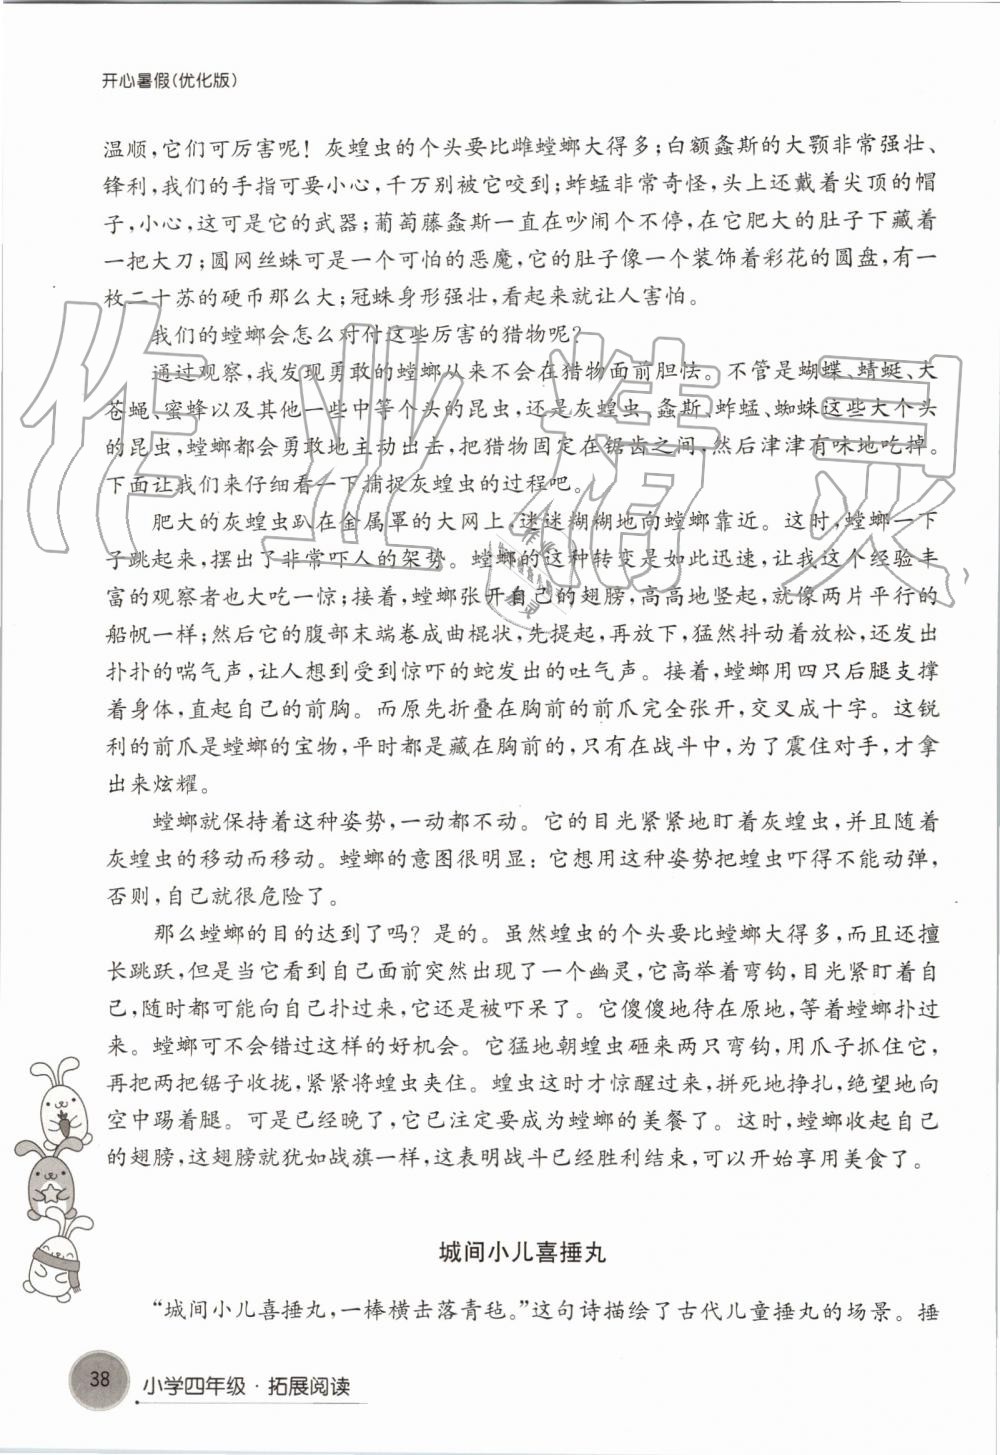 开心暑假(优化版)
温顺,它们可厉害呢！灰蝗虫的个头要比雌螳螂大得多;白额螽斯的大颚非常强壮、
锋利,我们的手指可要小心,千万别被它咬到;蚱蜢非常奇怪,头上还戴着尖顶的帽
子,小心,这可是它的武器;葡萄藤螽斯一直在吵闹个不停,在它肥大的肚子下藏着
一把大刀;圆网丝蛛可是一个可怕的恶魔,它的肚子像一个装饰着彩花的圆盘,有一
枚二十苏的硬币那么大;冠蛛身形强壮,看起来就让人害怕。
我们的螳螂会怎么对付这些厉害的猎物呢?
通过观察,我发现勇敢的螳螂从来不会在猎物面前胆怯。不管是蝴蝶、蜻蜓、大
苍蝇、蜜蜂以及其他一些中等个头的昆虫,还是灰蝗虫、螽斯、蚱蜢、蜘蛛这些大个头
的昆虫,螳螂都会勇敢地主动出击,把猎物固定在锯齿之间,然后津津有味地吃掉。
下面让我们来仔细看一下捕捉灰蝗虫的过程吧。
肥大的灰蝗虫趴在金属罩的大网上,迷迷糊糊地向螳螂靠近。这时,螳螂一下
子跳起来,摆出了非常吓人的架势。螳螂的这种转变是如此迅速,让我这个经验丰
富的观察者也大吃一惊;接着,螳螂张开自己的翅膀,高高地竖起,就像两片平行的
船帆一样;然后它的腹部末端卷成曲棍状,先提起,再放下,猛然抖动着放松,还发出
扑扑的喘气声,让人想到受到惊吓的蛇发出的吐气声。接着,螳螂用四只后腿支撑
着身体,直起自己的前胸。而原先折叠在胸前的前爪完全张开,交叉成十字。这锐
利的前爪是螳螂的宝物,平时都是藏在胸前的,只有在战斗中,为了震住对手,才拿
出来炫耀。
螳螂就保持着这种姿势,一动都不动。它的目光紧紧地盯着灰蝗虫,并且随着
灰蝗虫的移动而移动。螳螂的意图很明显:它想用这种姿势把蝗虫吓得不能动弹,
否则,自己就很危险了。
那么螳螂的目的达到了吗?是的。虽然蝗虫的个头要比螳螂大得多,而且还擅
长跳跃,但是当它看到自己面前突然出现了一个幽灵,它高举着弯钩,目光紧盯着自
己,随时都可能向自己扑过来,它还是被吓呆了。它傻傻地待在原地,等着螳螂扑过
来。螳螂可不会错过这样的好机会。它猛地朝蝗虫砸来两只弯钩,用爪子抓住它,
再把两把锯子收拢,紧紧将蝗虫夹住。蝗虫这时才惊醒过来,拼死地挣扎,绝望地向
空中踢着腿。可是已经晚了,它已注定要成为螳螂的美餐了。这时,螳螂收起自己
的翅膀,这翅膀就犹如战旗一样,这表明战斗已经胜利结束,可以开始享用美食了。
城间小儿喜捶丸
“城间小儿喜捶丸,一棒横击落青毡。”这句诗描绘了古代儿童捶丸的场景。捶
38
小学四年级·拓展阅读
作业精灵